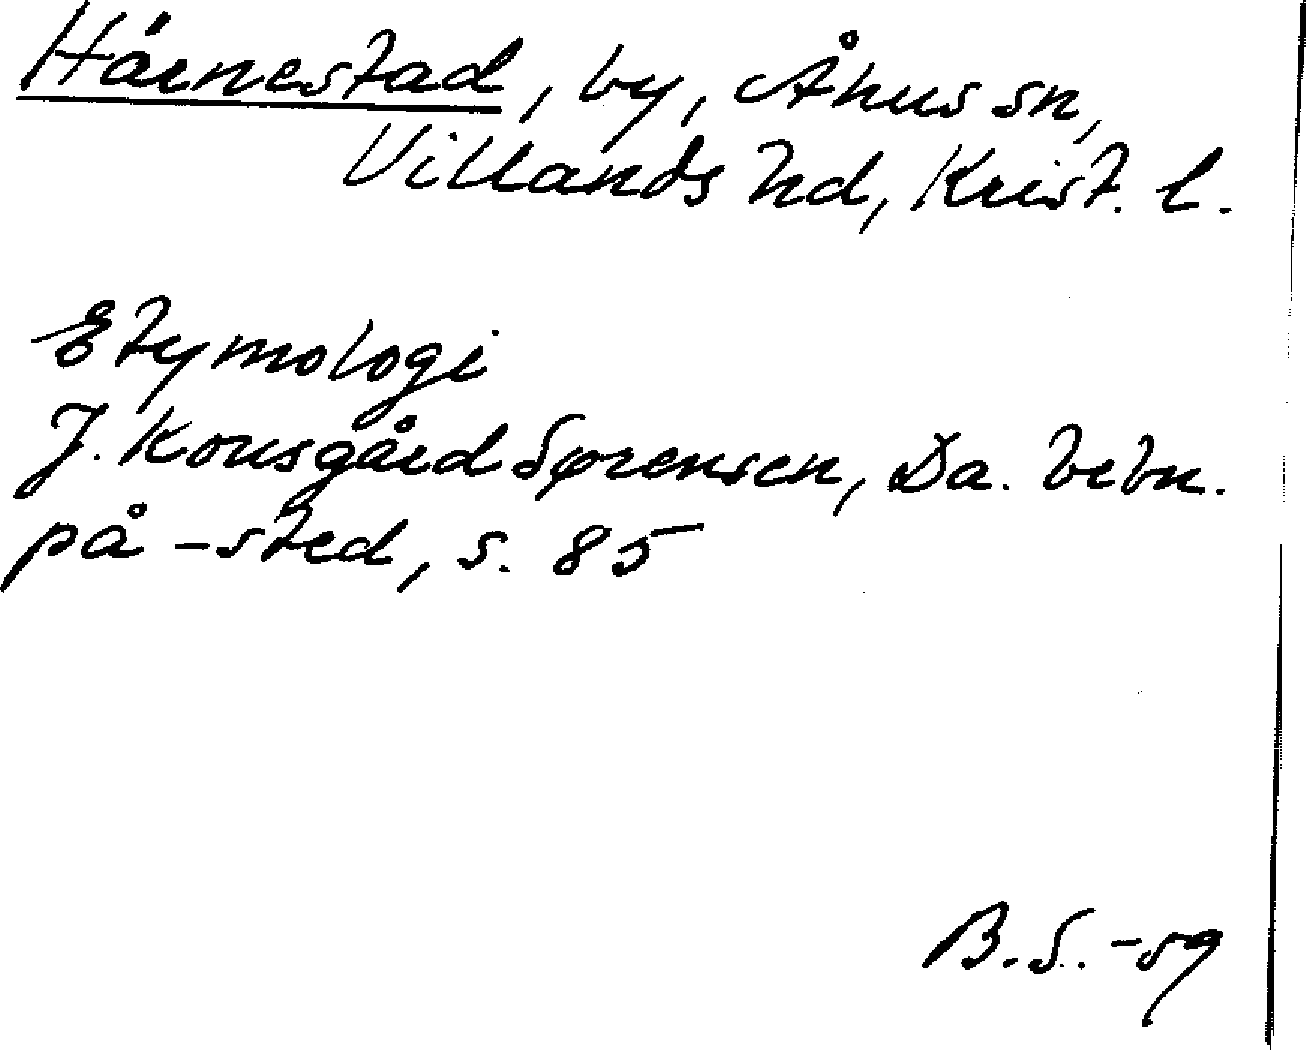 Härnestad, by, Åhus sn,
Villands hd, Krist. l.
Etymologi
J. Kousgård Sørensen, Da. bebn.
på -sted, s. 85
B.S. -59